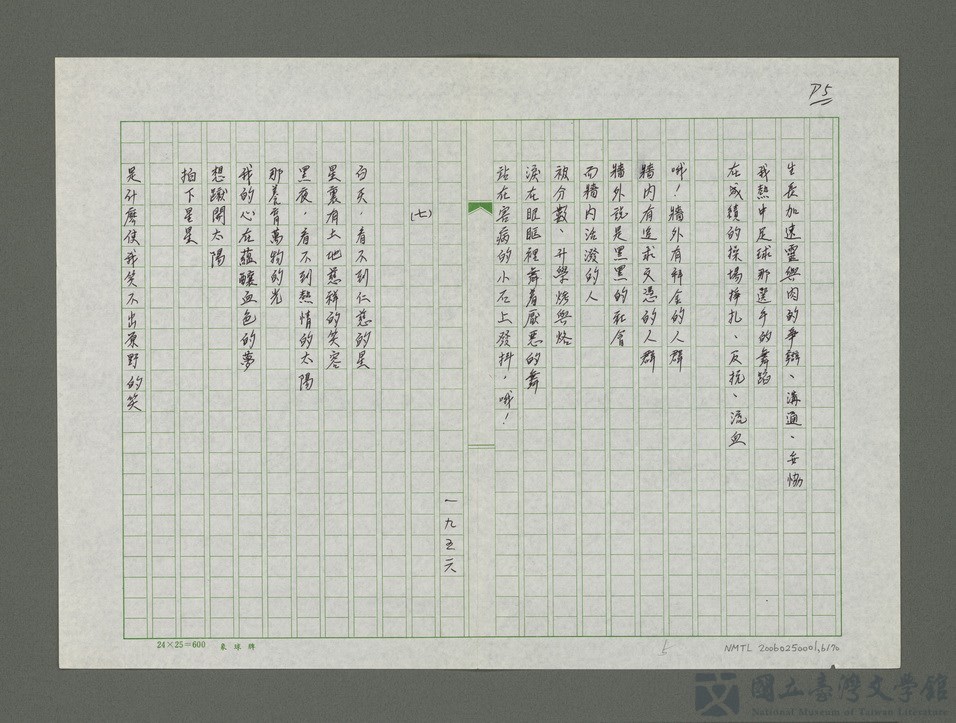 P5
生長加速靈與肉的爭辯、溝通、妥協
我熱中足球那選手的舞蹈
在成績的操場掙扎、反抗、流血
哦！牆外有拜金的人群
牆內有追求文憑的人群
牆外說是黑黑的社會
而牆內活潑的人
被分數、升學烙與烙
淚在眼眶裡舞着厭惡的舞
站在害病的小石上發抖，哦！
一九五六
(七)
白天，看不到仁慈的星
星裏有上地慈祥的笑容
黑夜，看不到熱情的太陽
那養育萬物的光
我的心在蘊釀血色的夢
想蹴開太陽
拍下星星
是什麼使我笑不出原野的笑
24×25=600 象球牌
NMTL 20060250001,6/70
國立臺灣文學館
National Museum of Taiwan Literature